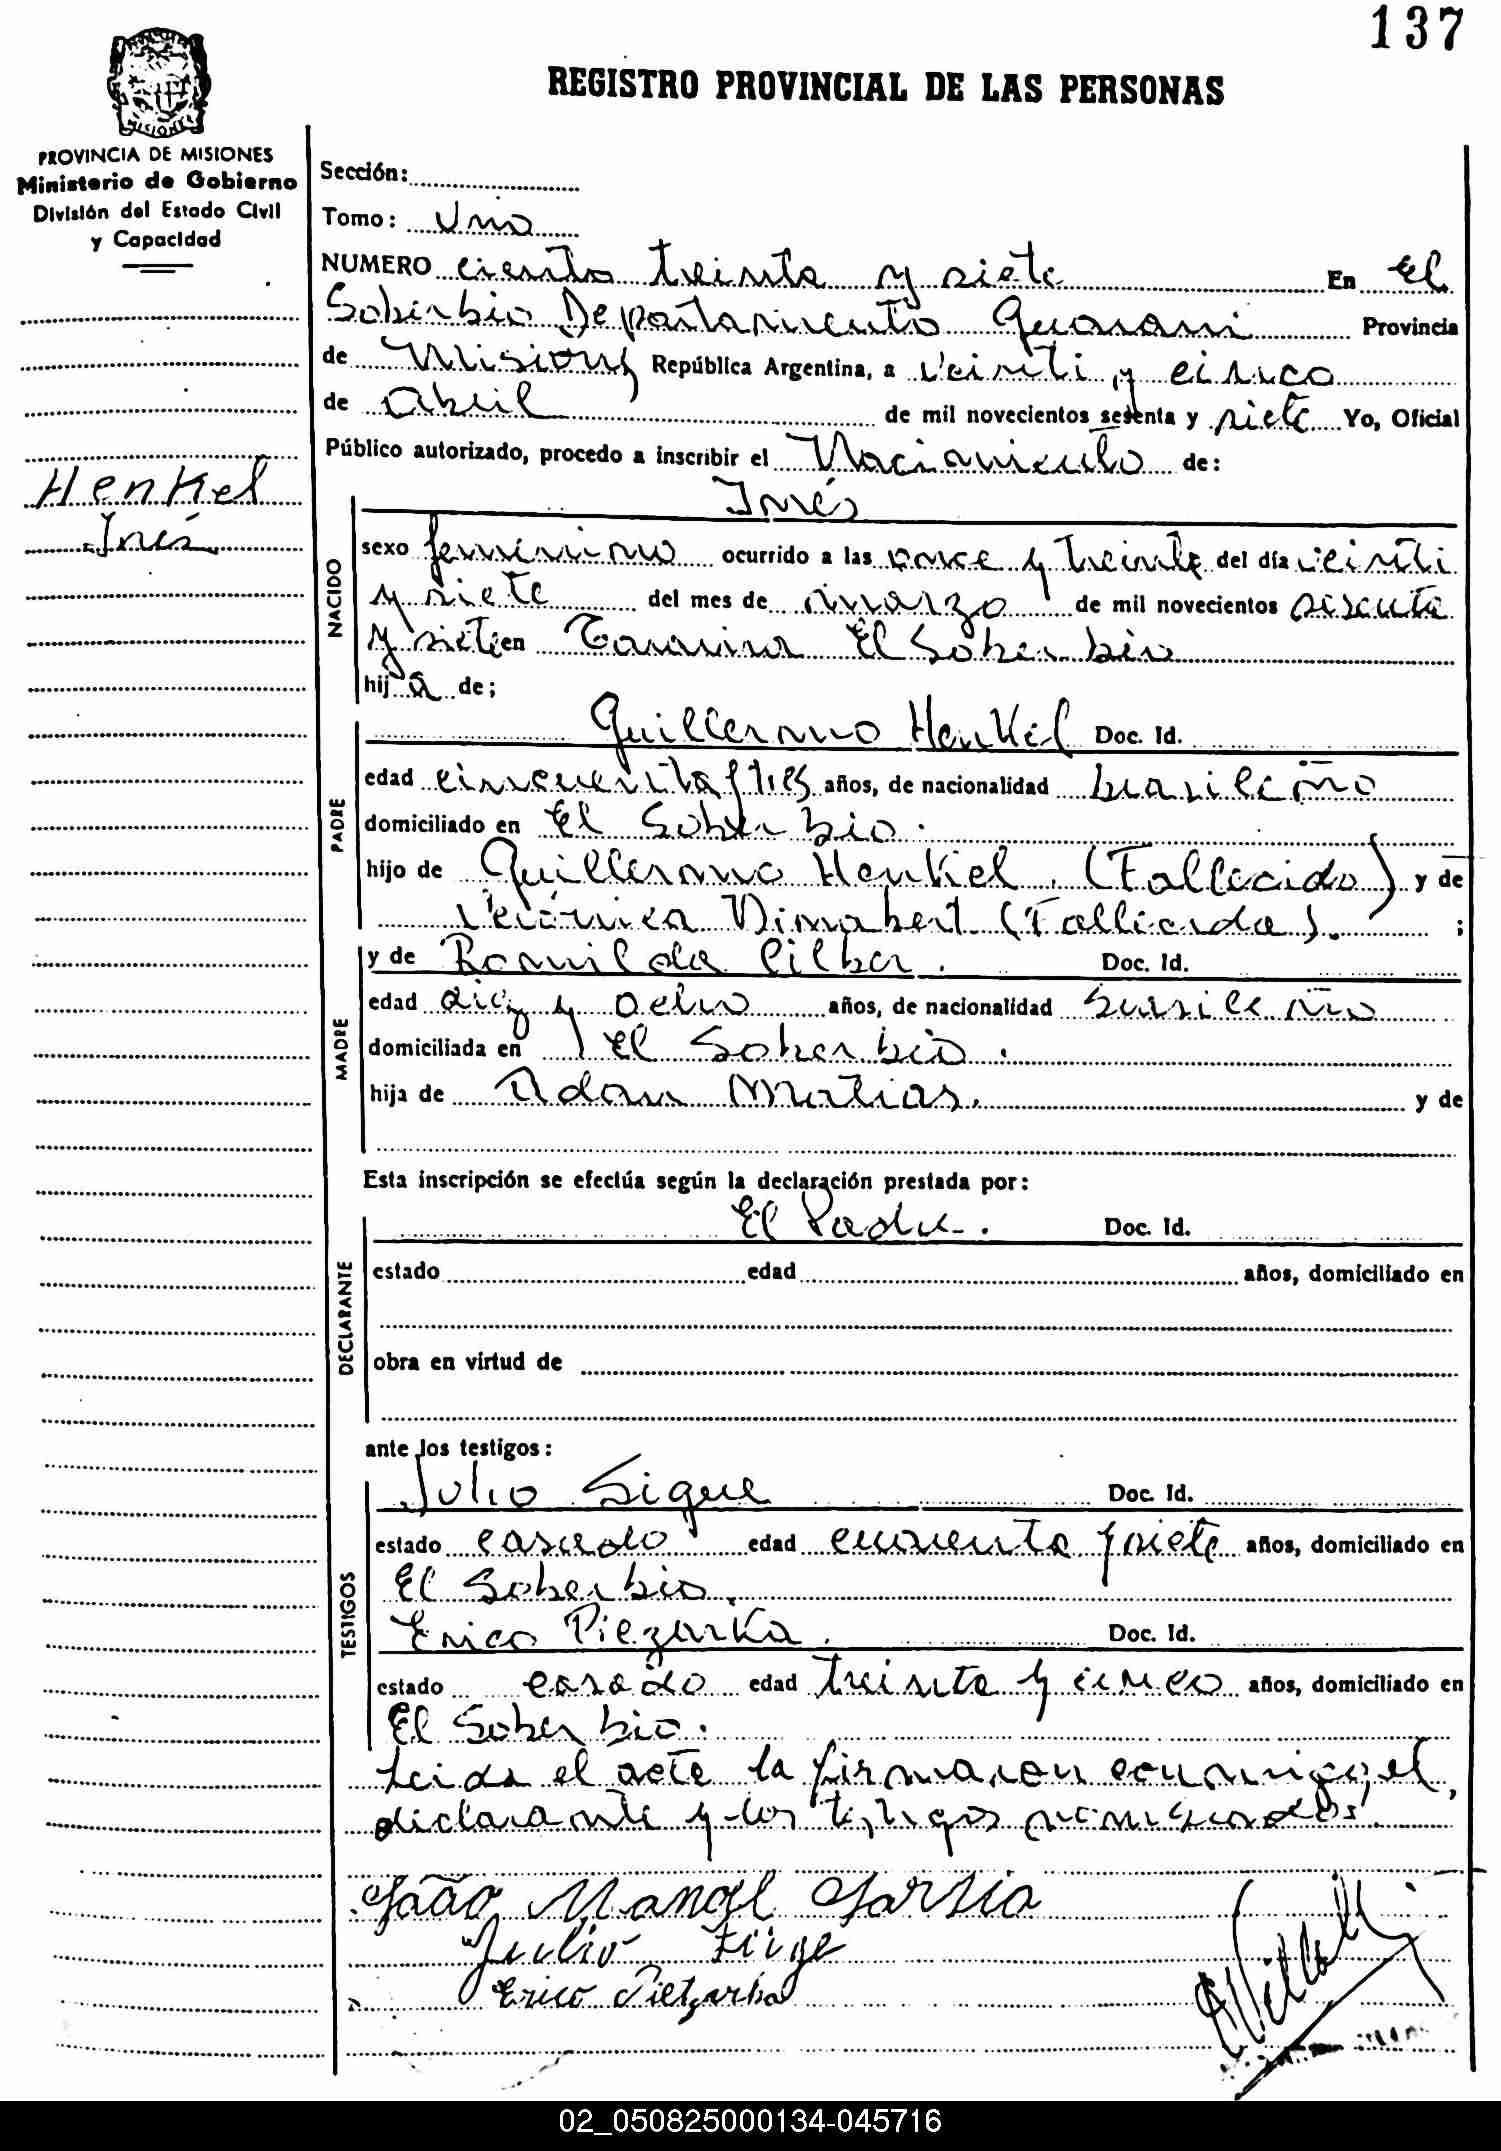 137
REGISTRO PROVINCIAL DE LAS PERSONAS
MISIONES
PROVINCIA DE MISIONES
Ministerio de Gobierno
División del Estado Civil
y Capacidad
Henkel
Inés
Sección:
Tomo: Uno
NUMERO ciento treinta y siete En El
Soberbio Departamento Guarani Provincia
de Misiones República Argentina, a veinti y cinco
de Abril de mil novecientos sesenta y siete Yo, Oficial
Público autorizado, procedo a inscribir el Nacimiento de:
Inés
NACIDO
sexo femenino ocurrido a las once y treinta del día veinti
y siete del mes de marzo de mil novecientos sesenta
y siete en El Soberbio
hija de;
PADRE
Guillermo Henkel Doc. Id.
edad cincuenta y tres años, de nacionalidad brasileño
domiciliado en El Soberbio.
hijo de Guillermo Henkel. (Fallecido) y de
Verónica (Fallecida). ;
MADRE
y de Romilda Cilber. Doc. Id.
edad diez y ocho años, de nacionalidad brasileño
domiciliada en El Soberbio.
hija de Adan Matias. y de
Esta inscripción se efectúa según la declaración prestada por:
DECLARANTE
El Padre. Doc. Id.
estado edad años, domiciliado en
obra en virtud de
ante los testigos:
TESTIGOS
Julio Sigue Doc. Id.
estado casado edad cuarenta y siete años, domiciliado en
El Soberbio.
Erico Piezarka. Doc. Id.
estado casado edad treinta y cinco años, domiciliado en
El Soberbio.
Leida el acta la firmaron conmigo, el
declarante y los testigos
João Manoel Garsia
Julio
Erico Pietzarka
02_050825000134-045716